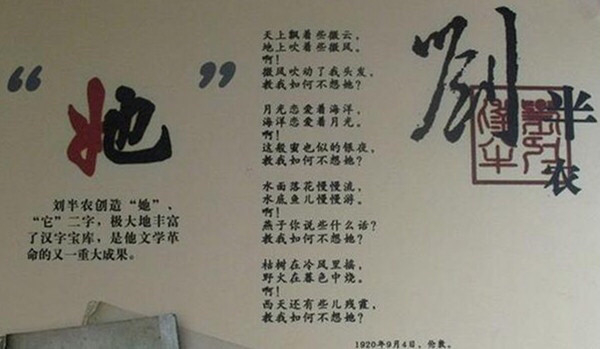 “她”
刘半农创造“她”、
“它”二字，极大地丰富
了汉字宝库，是他文学革
命的又一重大成果。
天上飘着些微云，
地上吹着些微风。
啊！
微风吹动了我头发，
教我如何不想她？
月光恋爱着海洋，
海洋恋爱着月光。
啊！
这般蜜也似的银夜，
教我如何不想她？
水面落花慢慢流，
水底鱼儿慢慢游。
啊！
燕子你说些什么话？
教我如何不想她？
枯树在冷风里摇，
野火在暮色中烧。
啊！
西天还有些儿残霞，
教我如何不想她？
1920年9月4日，伦敦。
劉
半
农